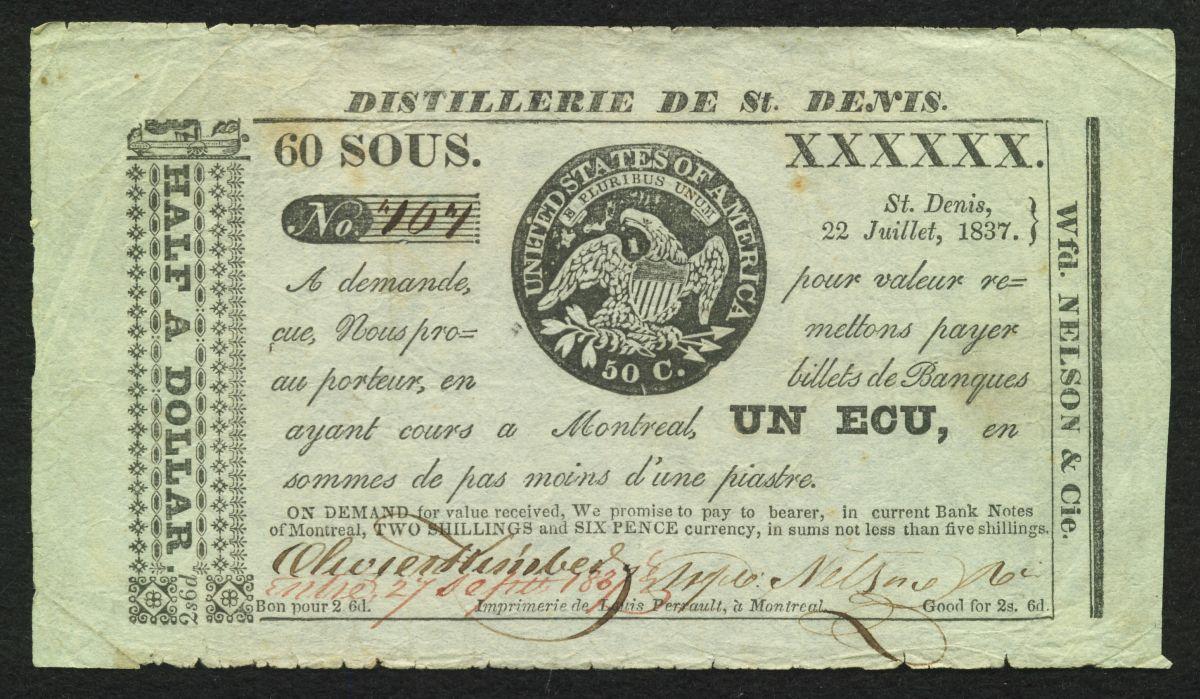 DISTILLERIE DE St. DENIS.
60 SOUS.
XXXXXX.
No. 767
UNITED STATES OF AMERICA
E PLURIBUS UNUM
50 C.
St. Denis,
22 Juillet, 1837.
A demande, pour valeur re=
cue, Nous pro= mettons payer
au porteur, en billets de Banques
ayant cours a Montreal, UN ECU, en
sommes de pas moins d'une piastre.
ON DEMAND for value received, We promise to pay to bearer, in current Bank Notes
of Montreal, TWO SHILLINGS and SIX PENCE currency, in sums not less than five shillings.
Entré 27 Septr
Nelson
Bon pour 2 6d.
Imprimerie de Louis Perrault, à Montreal.
Good for 2s. 6d.
HALF A DOLLAR.
Wfd. NELSON & Cie.